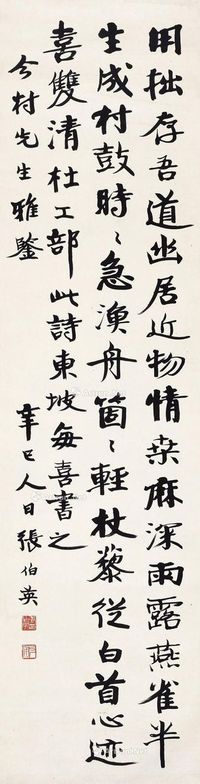 用拙存吾道幽居近物情桒麻深雨露燕雀半
生成村鼓時〻急漁舟箇〻輕杖藜從白首心迹
喜雙清杜工部此詩東坡每喜書之
今村先生雅鑒
辛巳人日張伯英